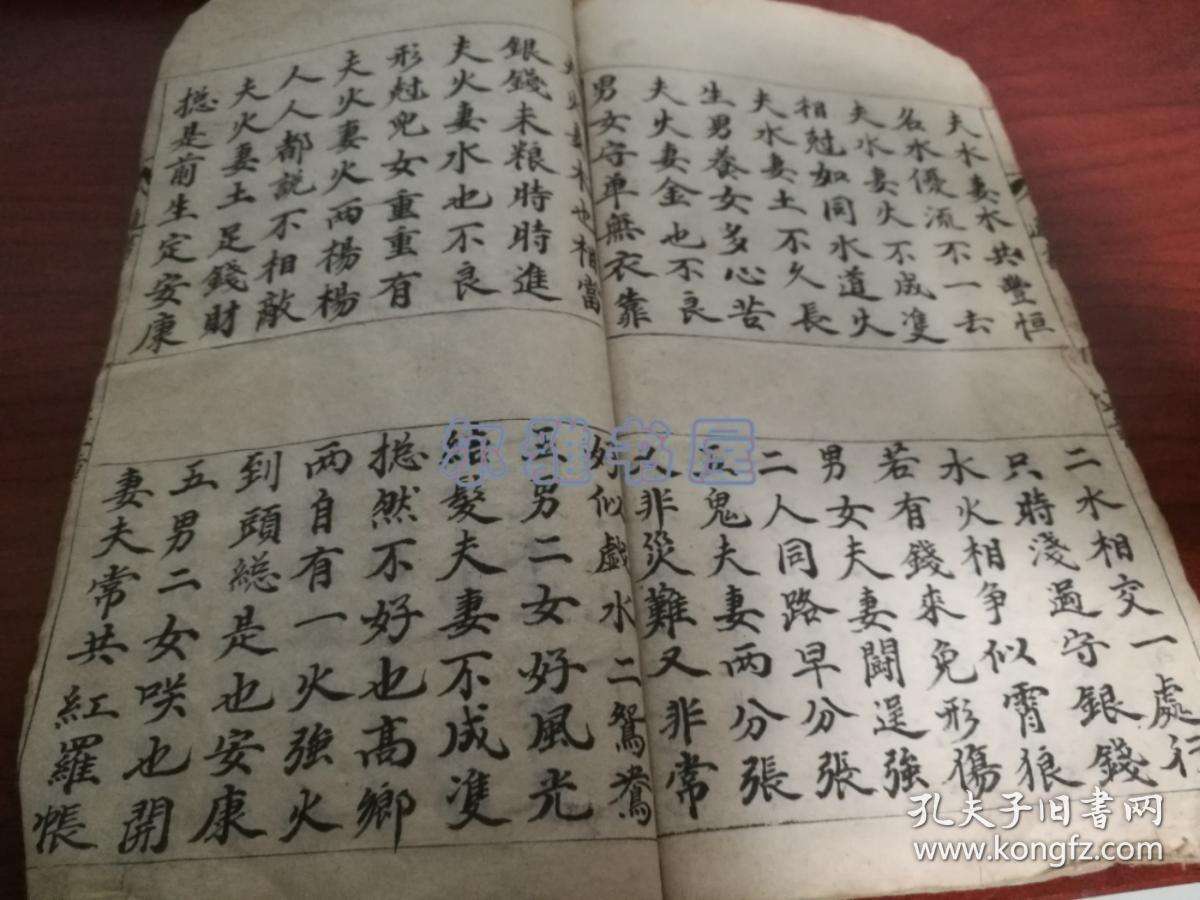 夫水妻水共豐恒
名水優流不一去
夫水妻火不成隻
相尅如同水道火
夫水妻土不久長
生男養女多心苦
夫火妻金也不良
男女守单無衣靠
二水相交一處行
只時淺過守銀錢
水火相争似霄狼
若有錢來免形傷
男女夫妻鬪逞強
二人同路早分張
五鬼夫妻兩分張
非災難又非常
夫火妻木也相當
銀錢未粮時時進
夫火妻水也不良
形尅兒女重重有
夫火妻火兩楊楊
人人都説不相敵
夫火妻土足錢財
捴是前生定安康
好似戲水二鴛鴦
五男二女好風光
結髮夫妻不成隻
捴然不好也高鄉
兩自有一火強火
到頭總是也安康
五男二女咲也開
妻夫常共紅羅帳
尔雅书屋
孔夫子旧书网
www.kongfz.com